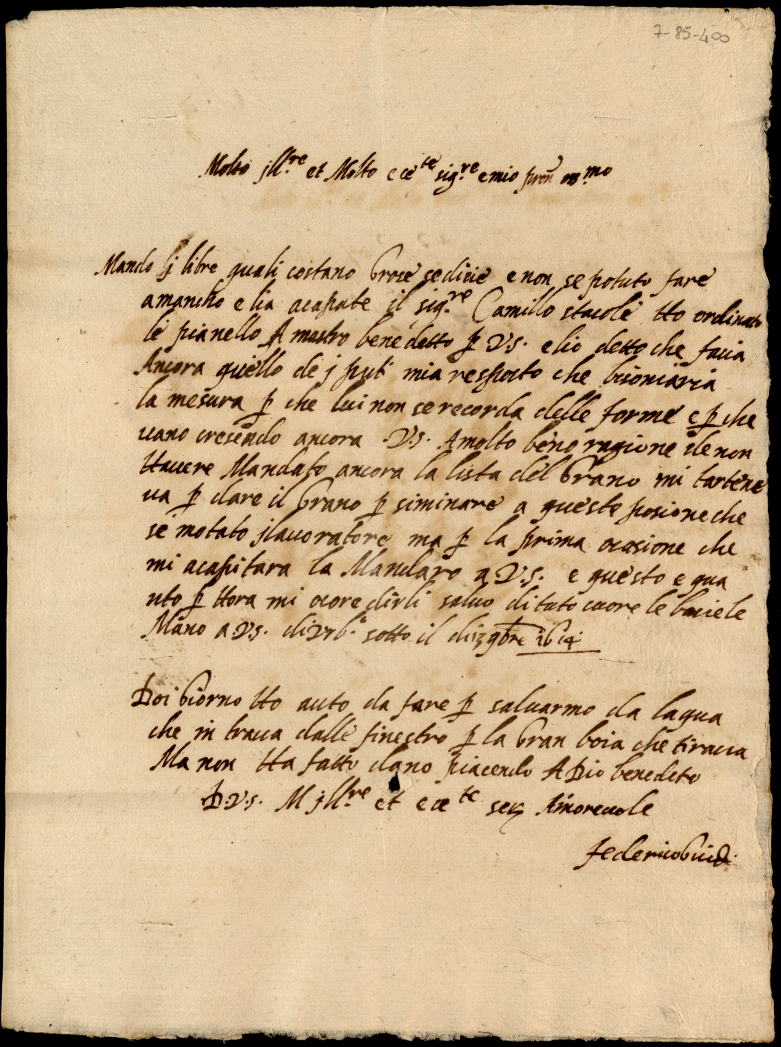 7-85-400
Molto jll.re et Molto ecc.te sig.re e mio
Mando li libre quali costano grose sedicie e non se potuto fare
amancho e lia acapate il sig.re Camillo stacole tto ordinato
le pianello A mastro benedetto p V.S. e lio detto che facia
Ancora quello de j put mia resposto che bisoniaria
la mesura p che lui non se recorda delle forme e p che
vano cresendo ancora .V.S. A molto bene ragione de non
ttavere Mandato ancora la lista del grano mi tartene
va p dare il grano p siminare a queste posione che
se motato jlavoratore ma p la prima ocasione che
mi acapitara la Mandaro a V.S. e questo e qua
nto p ttora mi ocore dirli salvo di tuto cuore le bacie le
Mano a V.S. di Urb.o sotto il di 9bre 1614
Doi giorno tto auto da fare p salvarmo da laqua
che in trava dalle finestro p la gran boia che tirava
Ma non tta fatto dano piacendo A Dio benedeto
D.V.S. M jll.re et ecc.te ser Amorevole
federico guid